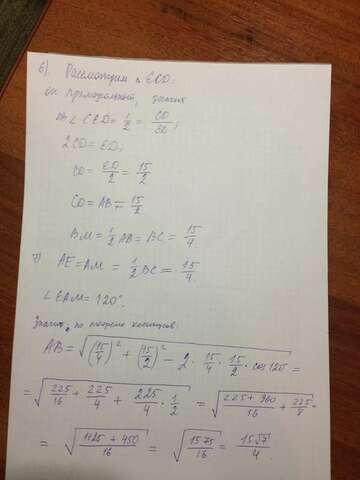 6). Рассмотрим △ ECD:
он прямоугольный, значит
sin ∠ CED = 1/2 = CD/ED;
2CD = ED;
CD = ED/2 = 15/2
CD = AB = 15/2
BM = 1/2 AB = BC = 15/4.
7) AE = AM = 1/2 BC = 15/4.
∠ EAM = 120°.
Значит, по теореме косинусов:
AB = √((15/4)² + (15/2)² − 2 · 15/4 · 15/2 · cos 120°) =
= √(225/16 + 225/4 + 225/4 · 1/2) = √((225 + 900)/16 + 225/8) =
= √((1125 + 450)/16) = √(1575/16) = 15√7/4.